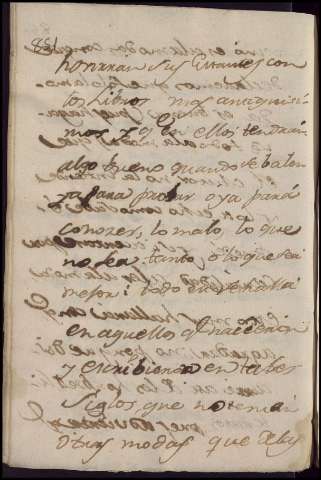 honrraran sus Estantes con
los Libros mas antiguisi
mos, y q en ellos tendran
algo bueno quando se balen
ya para probar o ya para
conozer, lo malo, lo que
no sea tanto, o lo que sea
mejor i todo se halla
en aquellos q nacieron
y escribieron en tales
Siglos, que no tenian
otras modas que